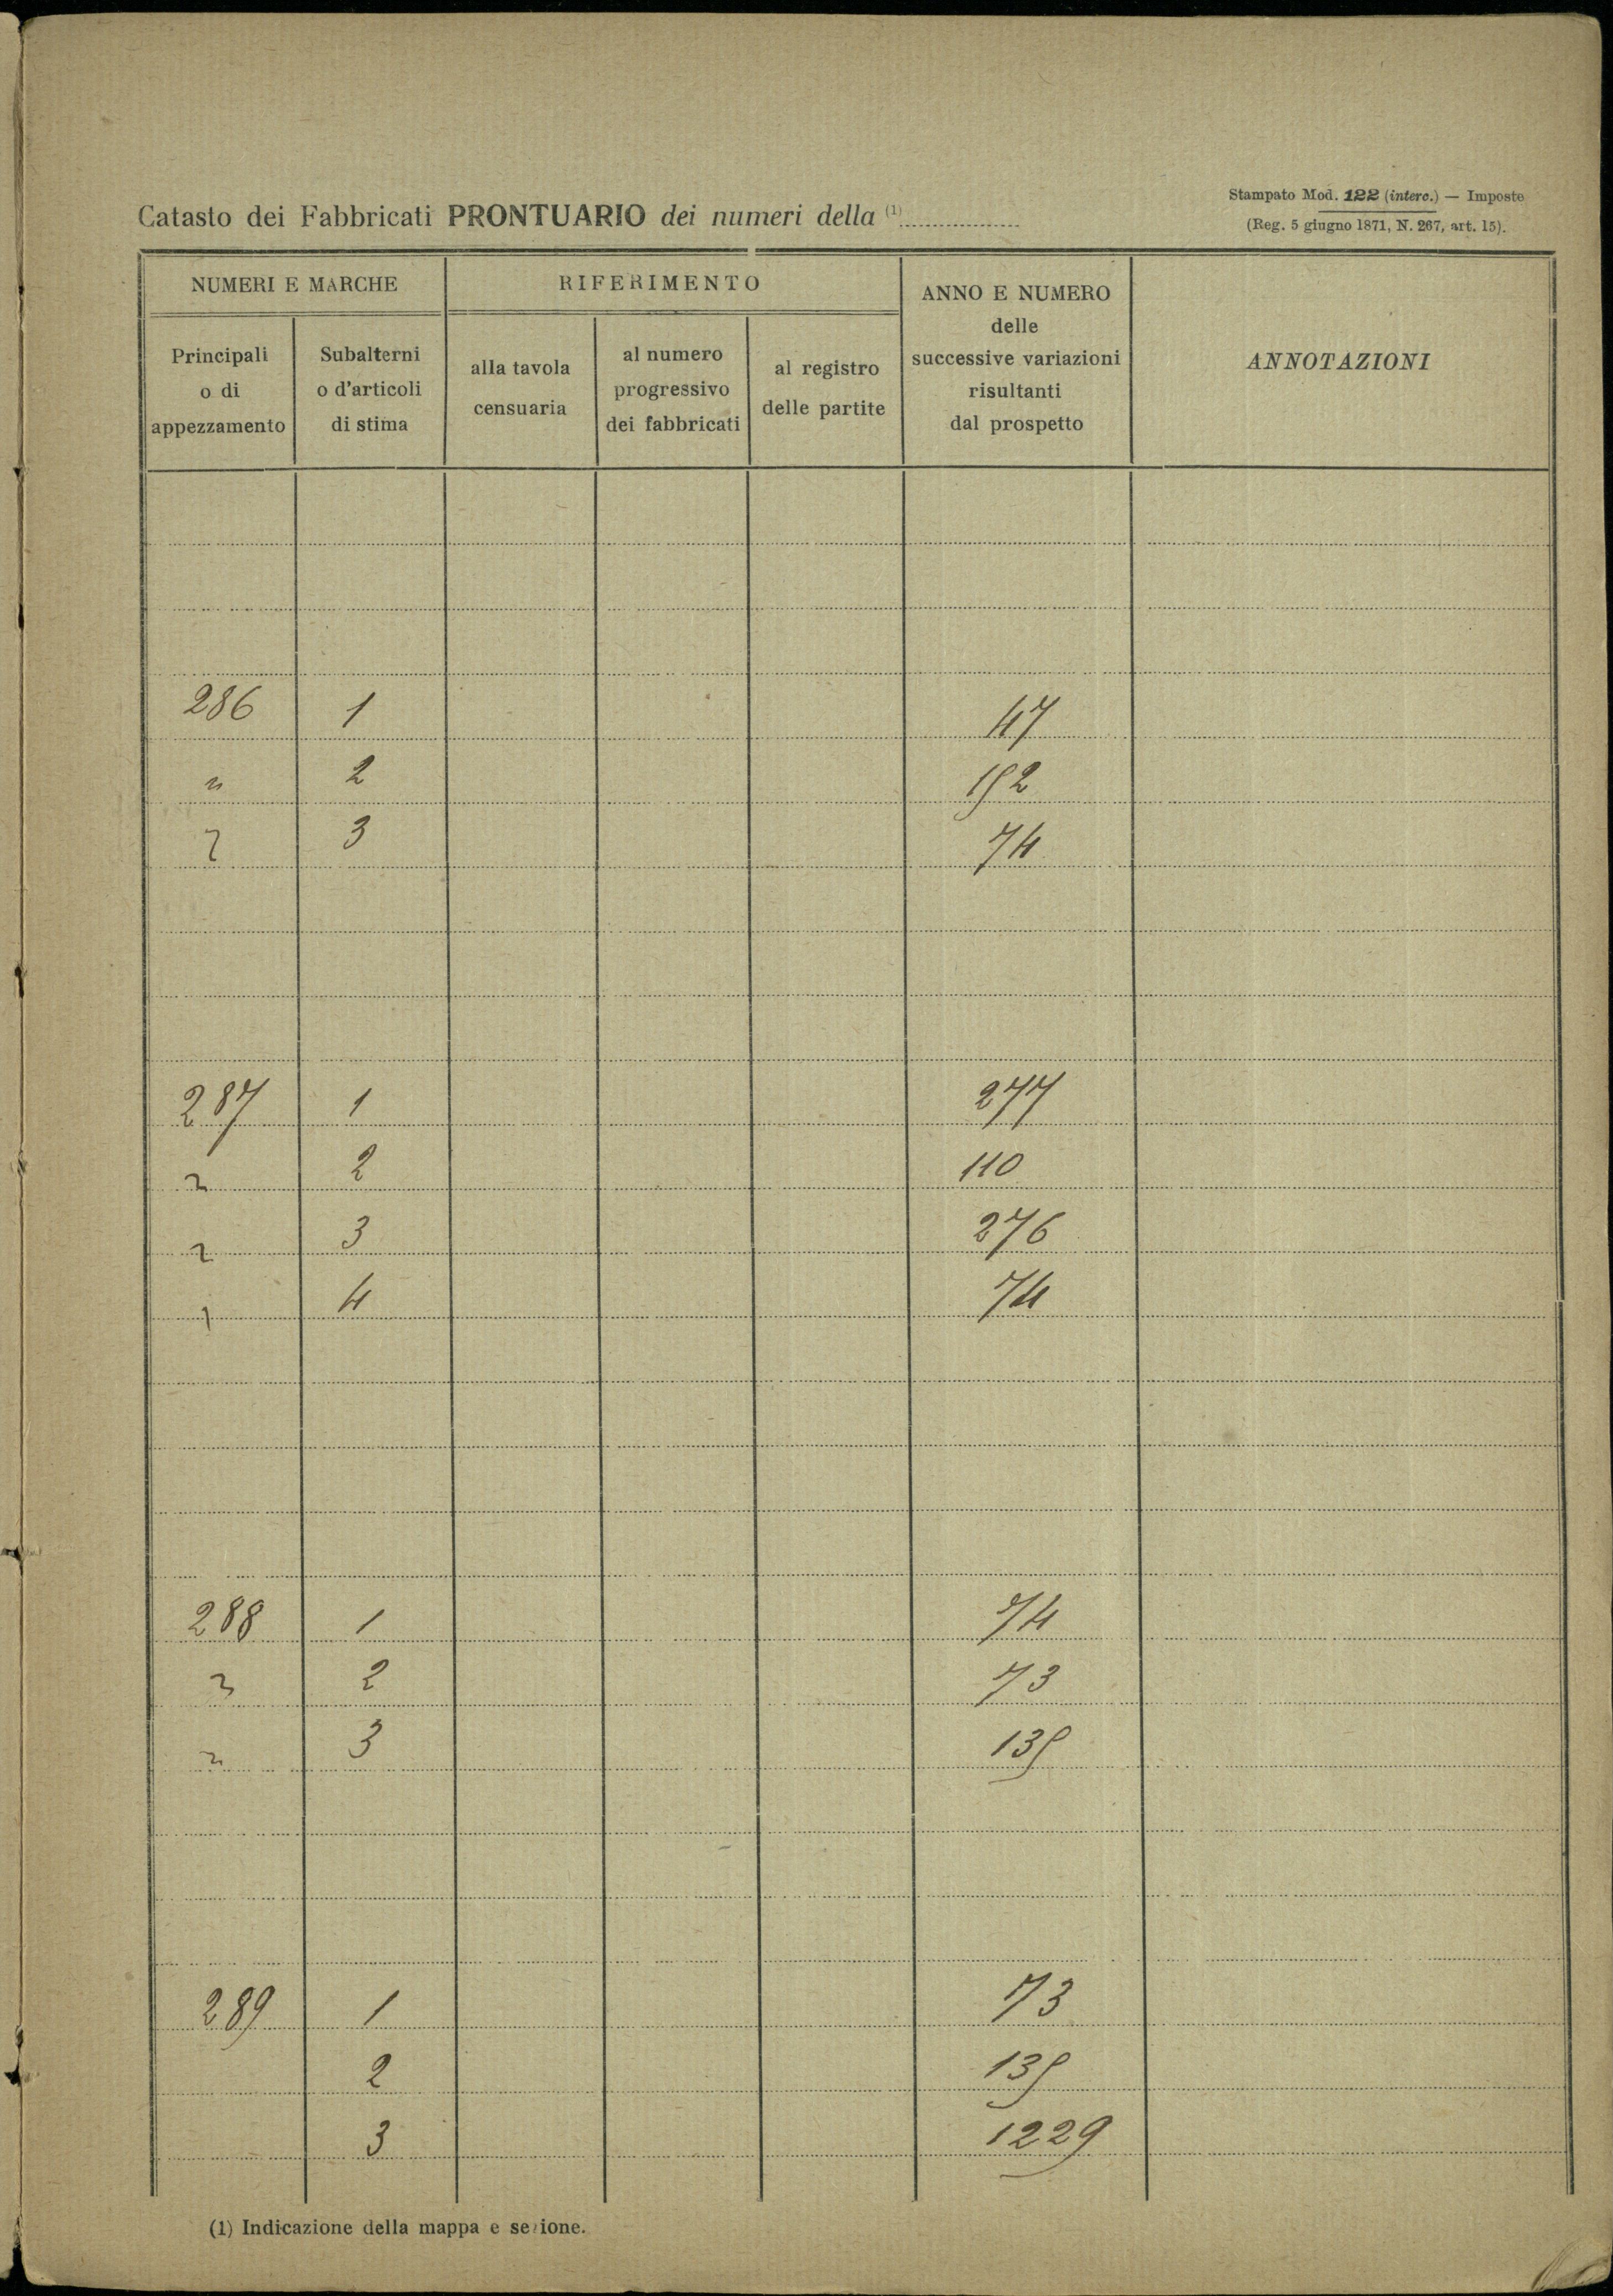 Catasto dei Fabbricati PRONTUARIO dei numeri della (1)
Stampato Mod. 122 (interc.) — Imposte
(Reg. 5 giugno 1871, N. 267, art. 15).
NUMERI E MARCHE
Principali o di appezzamento
Subalterni o d'articoli di stima
RIFERIMENTO
alla tavola censuaria
al numero progressivo dei fabbricati
al registro delle partite
ANNO E NUMERO delle successive variazioni risultanti dal prospetto
ANNOTAZIONI
286 1 47
" 2 152
" 3 74
287 1 277
" 2 110
" 3 276
" 4 74
288 1 74
" 2 73
" 3 135
289 1 73
2 135
3 1229
(1) Indicazione della mappa e sezione.